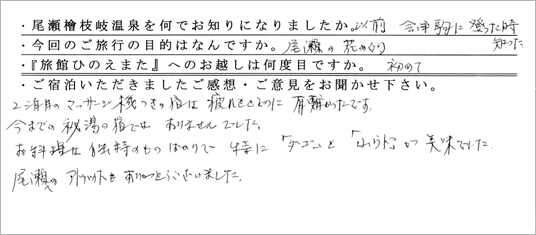 ・尾瀬檜枝岐温泉を何でお知りになりましたか。以前 会津駒に登った時知った
・今回のご旅行の目的はなんですか。尾瀬の花めぐり
・『旅館ひのえまた』へのお越しは何度目ですか。初めて
・ご宿泊いただきましたご感想・ご意見をお聞かせ下さい。
2泊目のマッサージ機つきの宿は疲れをとるのに有難かったです。
今までの秘湯の宿ではありませんでした。
お料理は独特のものばかりで 特に「ダゴン」と「ふらト」が美味でした
尾瀬へのアドバイスもありがとうございました。